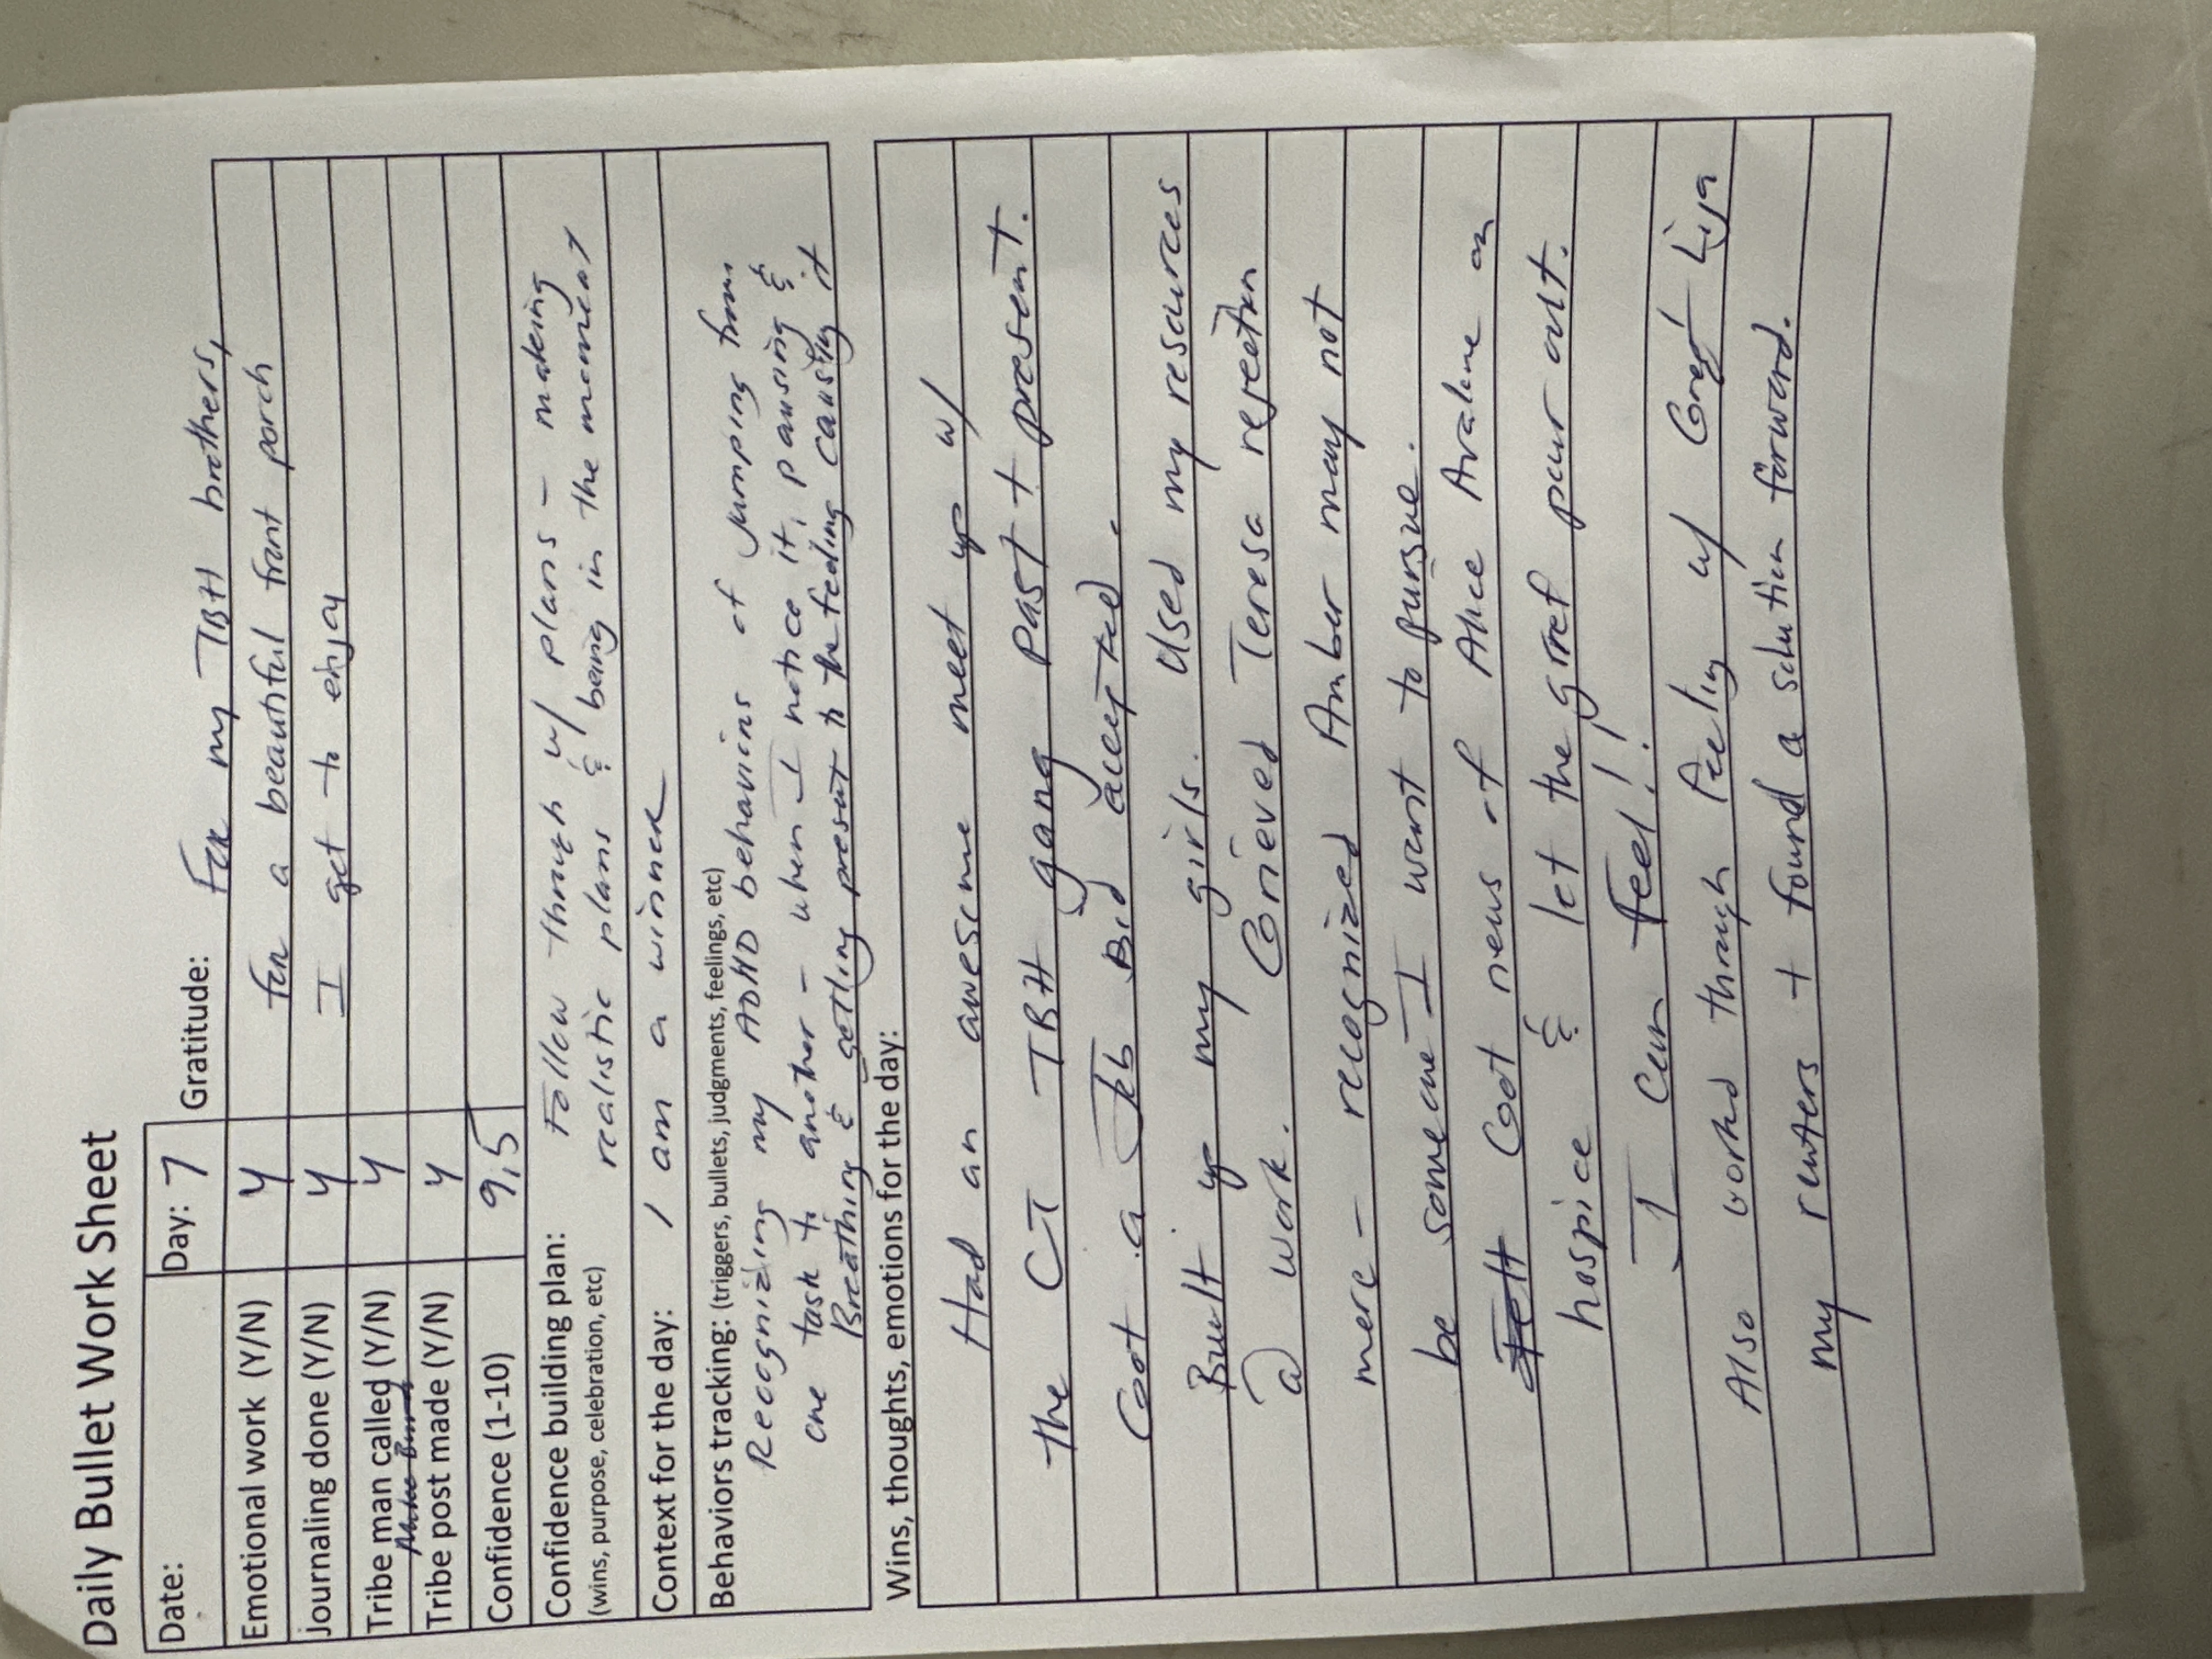 Daily Bullet Work Sheet
Date: Day: 7 Gratitude: For my TBH brothers,
Emotional work (Y/N) Y for a beautiful front porch
Journaling done (Y/N) Y I get to enjoy
Tribe man called (Y/N) Y
Tribe post made (Y/N) Y
Confidence (1-10) 9.5
Confidence building plan: Follow through w/ plans - making
(wins, purpose, celebration, etc) realistic plans & being in the moment
Context for the day: I am a winner
Behaviors tracking: (triggers, bullets, judgments, feelings, etc)
Recognizing my ADHD behaviors of jumping from
one task to another - when I notice it, pausing &
Breathing & getting present to the feeling causing it
Wins, thoughts, emotions for the day:
Had an awesome meet up w/
the CT TBH gang past + present.
Got a Job Bid accepted.
Built up my girls. Used my resources
@ work. Grieved Teresa rejection
more - recognized Amber may not
be someone I want to pursue.
Got news of Alice Avalene on
hospice & let the grief pour out.
I can feel!!
Also worked through feeling w/ Greg Lisa
my renters + found a solution forward.